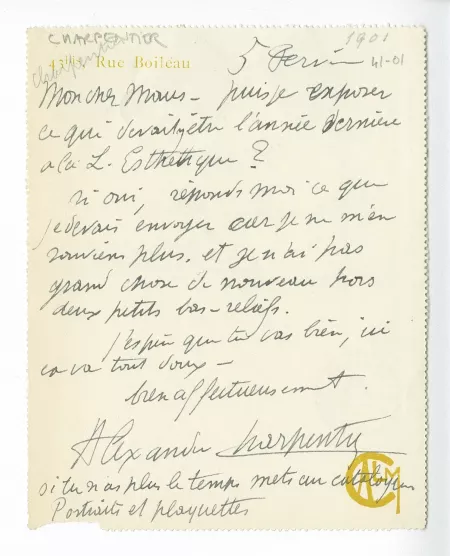 CHARPENTIER
Charpentier
1901
43bis Rue Boileau
5 Fevrier
41-01
Mon cher Maus - puis je exposer
ce qui devait y être l'année dernière
a la L. Esthétique ?
si oui, réponds moi ce que
je devais envoyer car je ne m'en
souviens plus. et je n'ai pas
grand chose de nouveau hors
deux petits bas-reliefs.
j'espère que tu vas bien, ici
ca va tout doux -
bien affectueusement.
Alexandre Charpentier
si tu n'as plus le temps mets au catalogue
Portraits et plaquettes